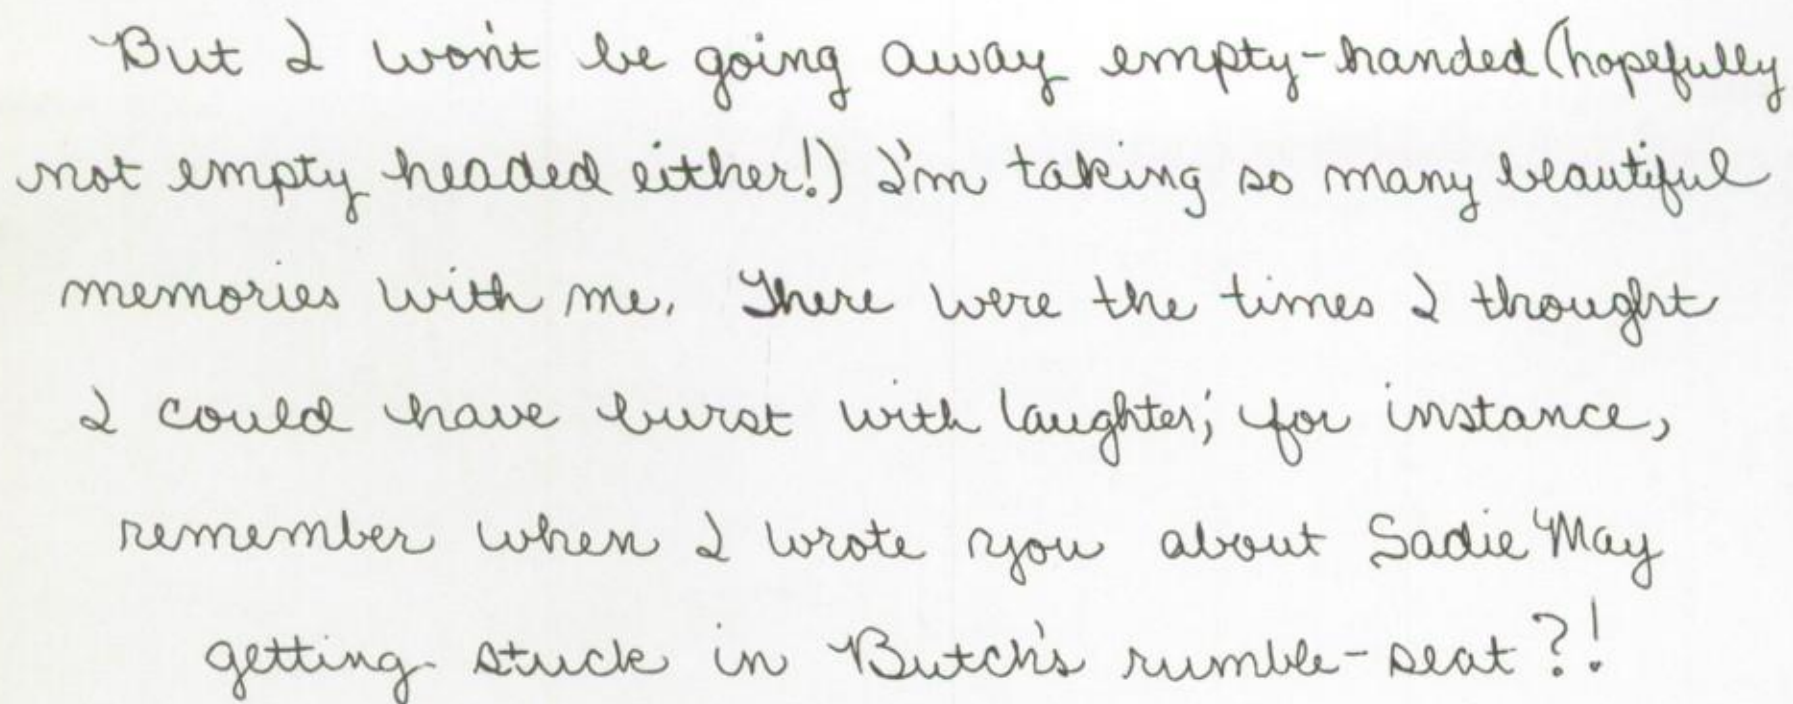 But I won't be going away empty-handed (hopefully
not empty headed either!) I'm taking so many beautiful
memories with me. There were the times I thought
I could have burst with laughter; for instance,
remember when I wrote you about Sadie May
getting stuck in Butch's rumble-seat?!